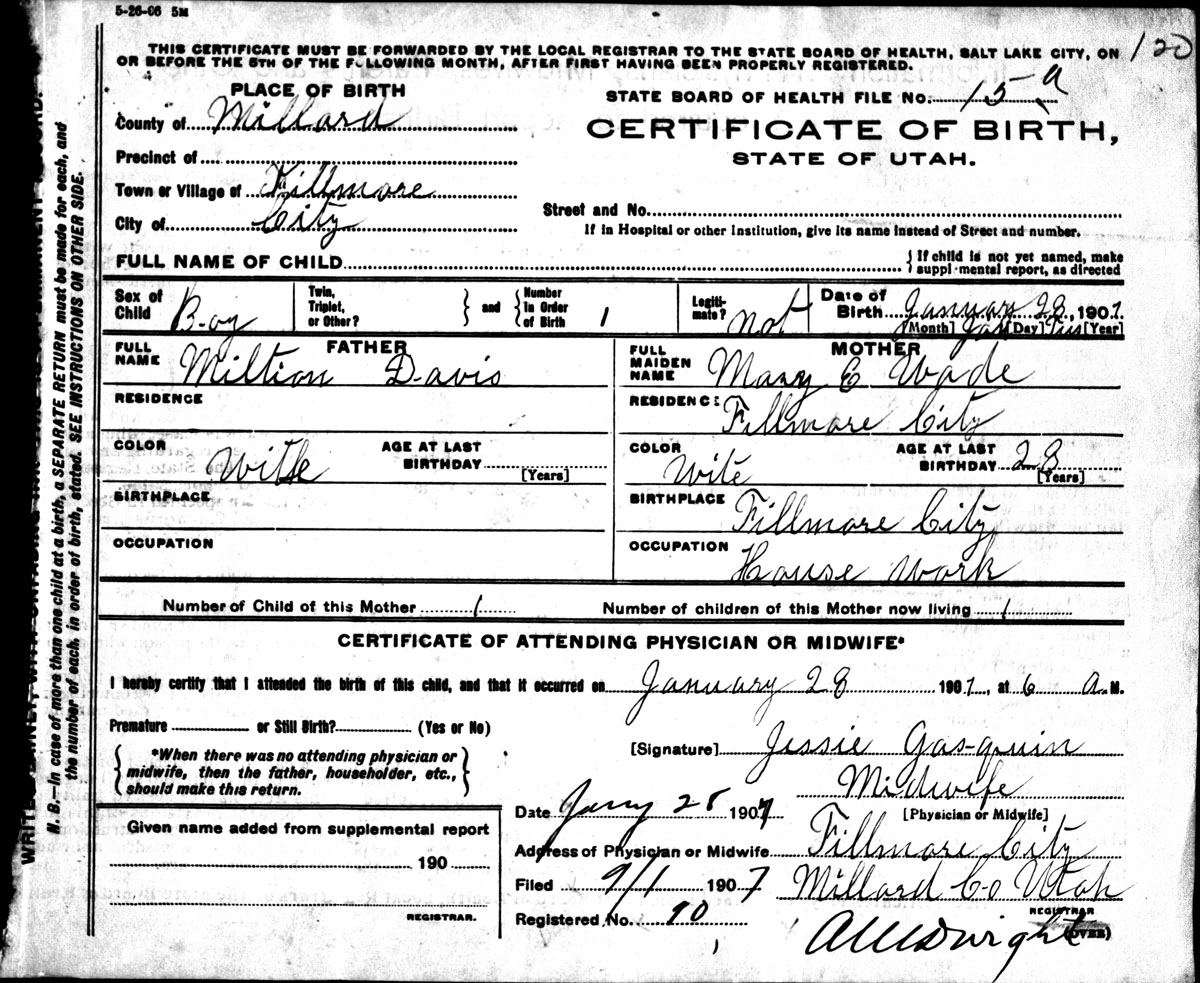 5-26-06 5M
120
THIS CERTIFICATE MUST BE FORWARDED BY THE LOCAL REGISTRAR TO THE STATE BOARD OF HEALTH, SALT LAKE CITY, ON
OR BEFORE THE 5TH OF THE FOLLOWING MONTH, AFTER FIRST HAVING BEEN PROPERLY REGISTERED.
PLACE OF BIRTH
STATE BOARD OF HEALTH FILE NO. 15-a
County of Millard
CERTIFICATE OF BIRTH,
STATE OF UTAH.
Precinct of
Town or Village of Fillmore
City of City
Street and No.
If in Hospital or other Institution, give its name instead of Street and number.
FULL NAME OF CHILD
{ If child is not yet named, make
supplemental report, as directed
Sex of Child Boy
Twin, Triplet, or Other? } and { Number in Order of Birth 1
Legitimate? not
Date of Birth January 28, 1907.
[Month] Jan [Day] [Year]
FATHER
FULL NAME Miltion Davis
RESIDENCE
COLOR Witle
AGE AT LAST BIRTHDAY [Years]
BIRTHPLACE
OCCUPATION
MOTHER
FULL MAIDEN NAME Mary E Wade
RESIDENCE Fillmore City
COLOR Wite
AGE AT LAST BIRTHDAY 28 [Years]
BIRTHPLACE Fillmore City
OCCUPATION House work
Number of Child of this Mother 1 Number of children of this Mother now living 1
CERTIFICATE OF ATTENDING PHYSICIAN OR MIDWIFE*
I hereby certify that I attended the birth of this child, and that it occurred on January 28 1907, at 6 A.M.
Premature or Still Birth? (Yes or No)
{ *When there was no attending physician or
midwife, then the father, householder, etc.,
should make this return. }
[Signature] Jessie Gasquin
Midwife
[Physician or Midwife]
Date Jany 28 1907
Address of Physician or Midwife Fillmore City
Filed 9/1 1907 Millard Co Utah
Registered No. 90
REGISTRAR
(OVER)
Given name added from supplemental report
190
REGISTRAR.
N. B.—In case of more than one child at a birth, a SEPARATE RETURN must be made for each, and
the number of each, in order of birth, stated. SEE INSTRUCTIONS ON OTHER SIDE.